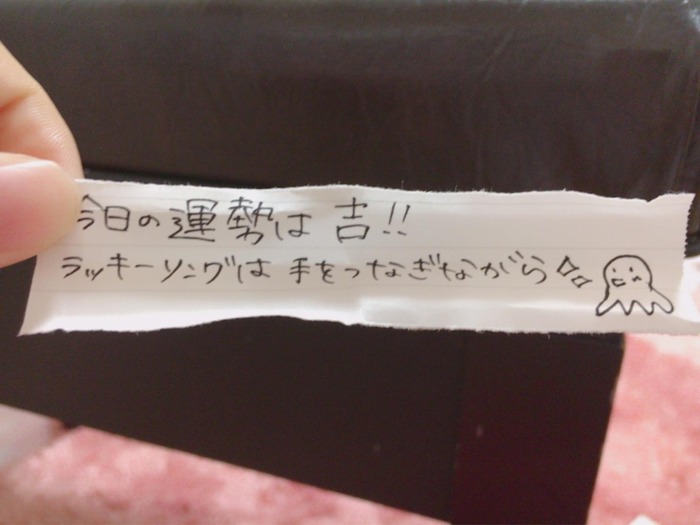 今日の運勢は 吉!!
ラッキーソングは 手をつなぎながら